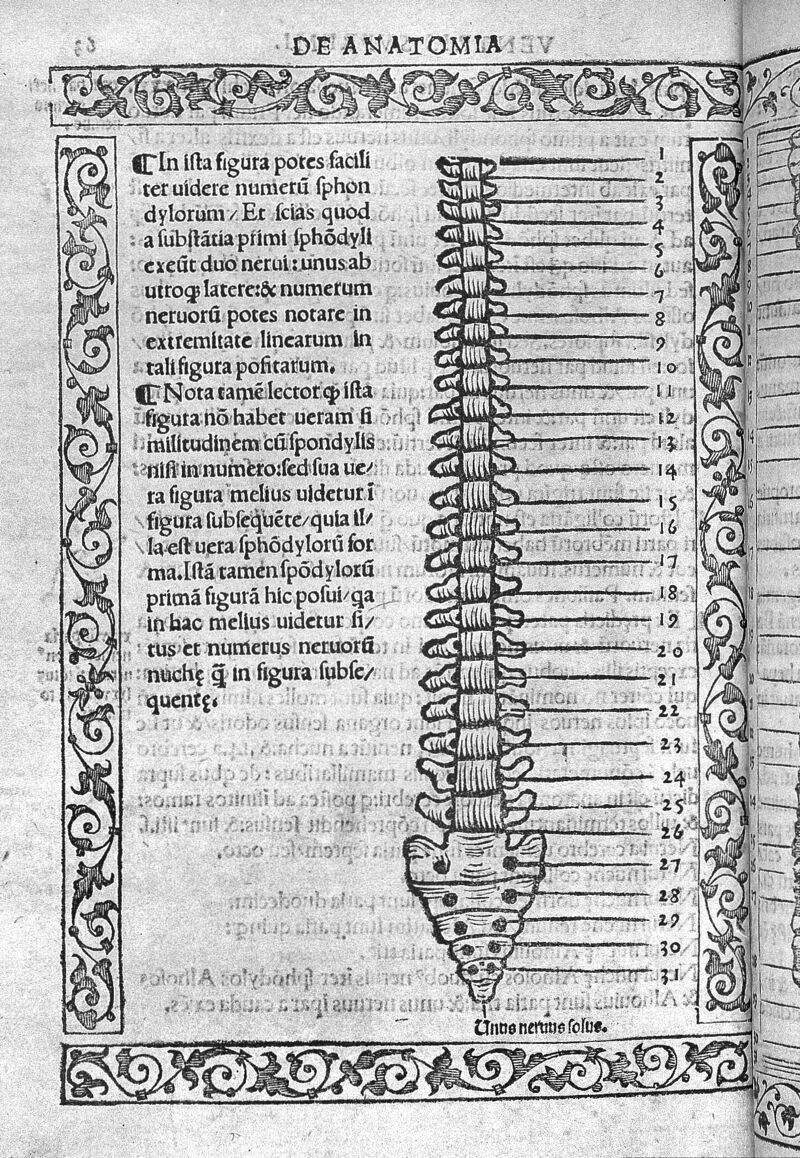 DE ANATOMIA
¶ In ista figura potes facili
ter uidere numerũ sphon
dylorum/ Et scias quod
a substãtia primi sphõdyli
exeũt duo nerui: unus ab
utroq; latere: & numerum
neruorũ potes notare in
extremitate linearum in
tali figura positarum.
¶ Nota tamẽ lector ꝙ ista
figura nõ habet ueram si
militudinem cũ spondylis
nisi in numero: sed sua ue/
ra figura melius uidetur ĩ
figura subsequẽte/ quia il/
la est uera sphõdylorũ for
ma. Istã tamen spõdylorũ
primã figurã hic posui/ qa
in hac melius uidetur si/
tus et numerus neruorũ
nuchę q̃ in figura subse/
quentę.
1
2
3
4
5
6
7
8
9
10
11
12
13
14
15
16
17
18
19
20
21
22
23
24
25
26
27
28
29
30
31
Unus neruus solus.